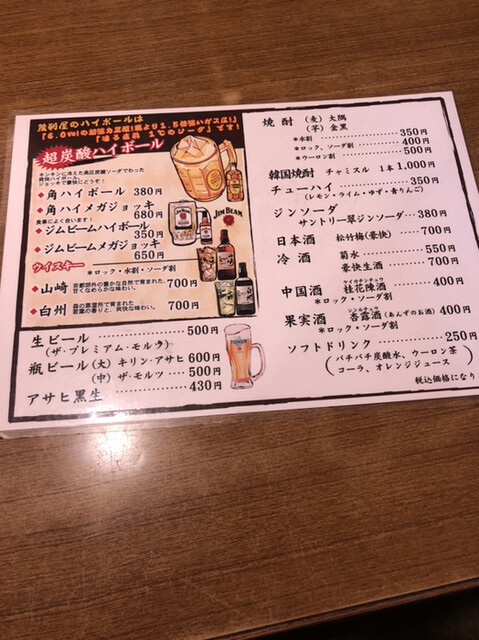 陸別屋のハイボールは
超炭酸ハイボール
キンキンに冷えた高圧炭酸ソーダでわった
爽快ハイボール
ジョッキで豪快にどうぞ！
◆角ハイボール 380円
◆角ハイメガジョッキ
680円
食事によく合います！
◆ジムビームハイボール
350円
◆ジムビームメガジョッキ
650円
JIM BEAM
ウイスキー
*ロック・水割・ソーダ割
◆山崎 700円
◆白州 700円
生ビール……………500円
（ザ・プレミアム・モルツ）
瓶ビール（大）キリン・アサヒ 600円
（中）ザ・モルツ …… 500円
アサヒ黒生……………430円
焼酎 （麦）大隅
（芋）金黒
*水割……………350円
*ロック、ソーダ割……………400円
*ウーロン割……………500円
韓国焼酎 チャミスル 1本 1,000円
チューハイ……………350円
（レモン・ライム・ゆず・青りんご）
ジンソーダ
サントリー翠ジンソーダ…380円
日本酒 松竹梅（豪快）…700円
冷酒 菊水……………550円
豪快生酒……………700円
中国酒 桂花陳酒……400円
*ロック・ソーダ割
果実酒 杏露酒（あんずのお酒）400円
*ロック・ソーダ割
ソフトドリンク……………250円
（バチバチ炭酸水、ウーロン茶
コーラ、オレンジジュース）
税込価格になり